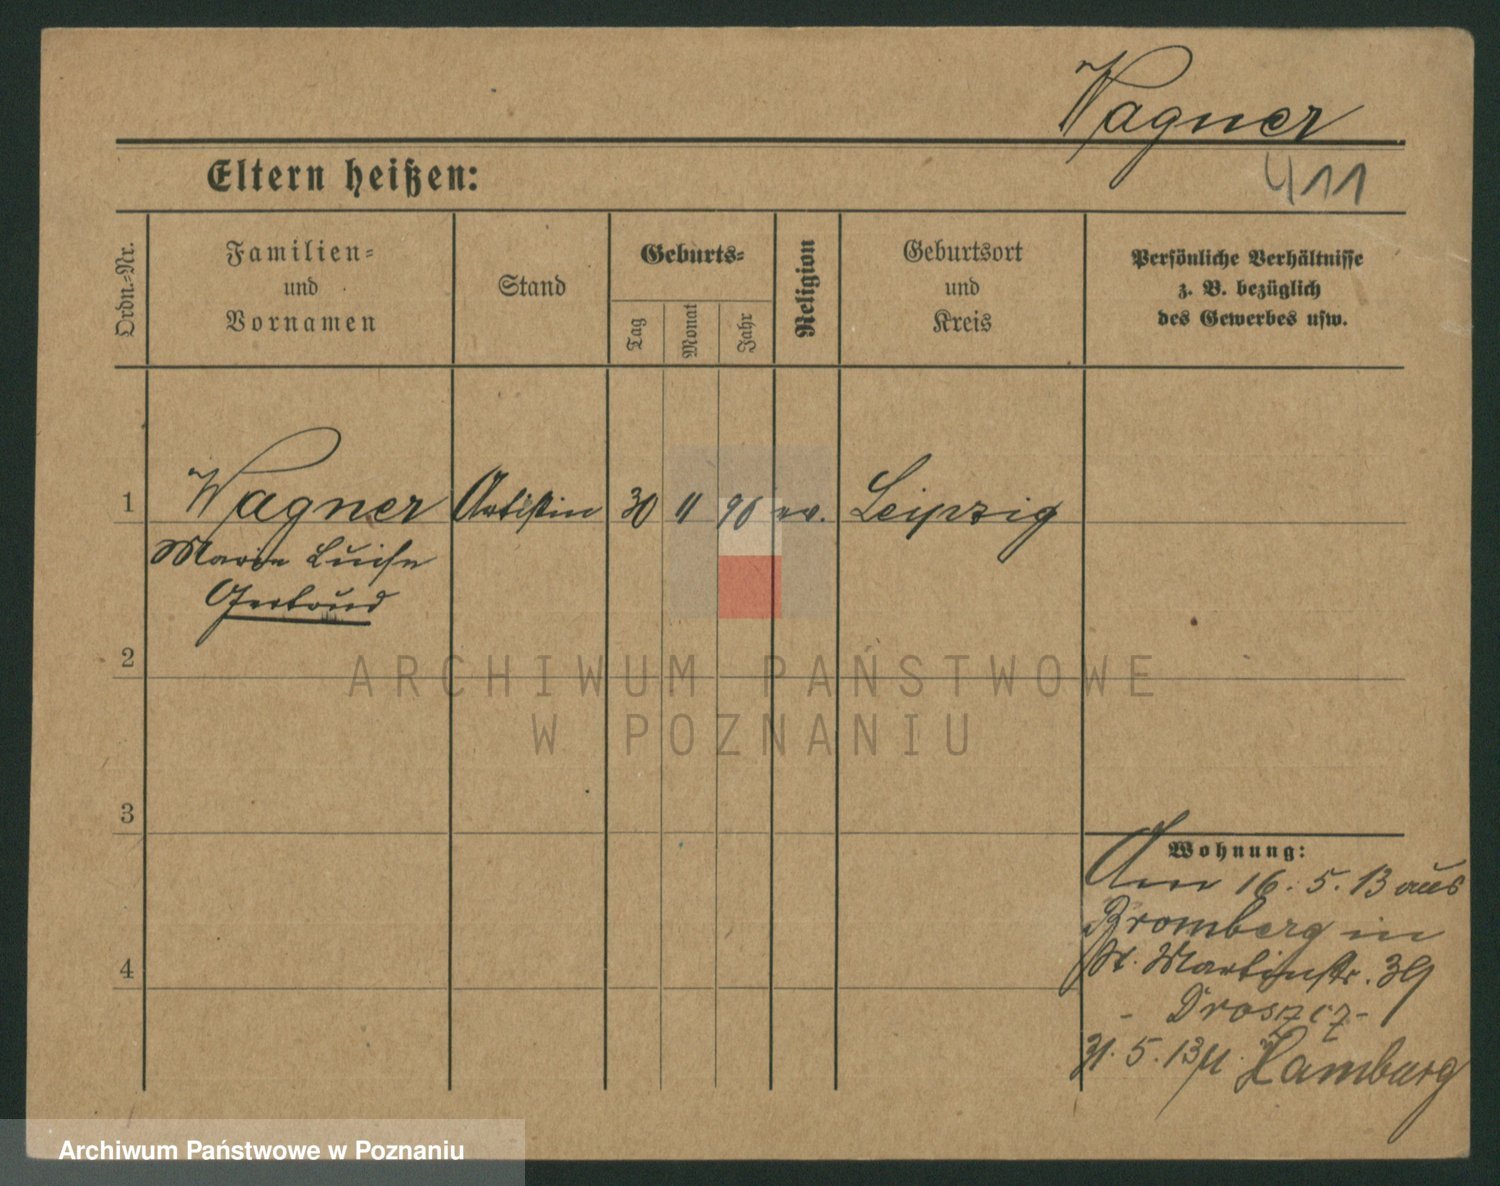 Wagner
411
Eltern heißen:
Ordn.-Nr.
Familien-
und
Vornamen
Stand
Geburts-
Tag
Monat
Jahr
Religion
Geburtsort
und
Kreis
Persönliche Verhältnisse
z. B. bezüglich
des Gewerbes usw.
1 Wagner Artistin 30 11 90 ev. Leipzig
Marie Luise
Gertrud
2
3
4
Wohnung:
Am 16. 5. 13 aus
Bromberg in
St. Martinstr. 39
- Droszcz -
31. 5. 13 Hamburg
ARCHIWUM PAŃSTWOWE
W POZNANIU
Archiwum Państwowe w Poznaniu